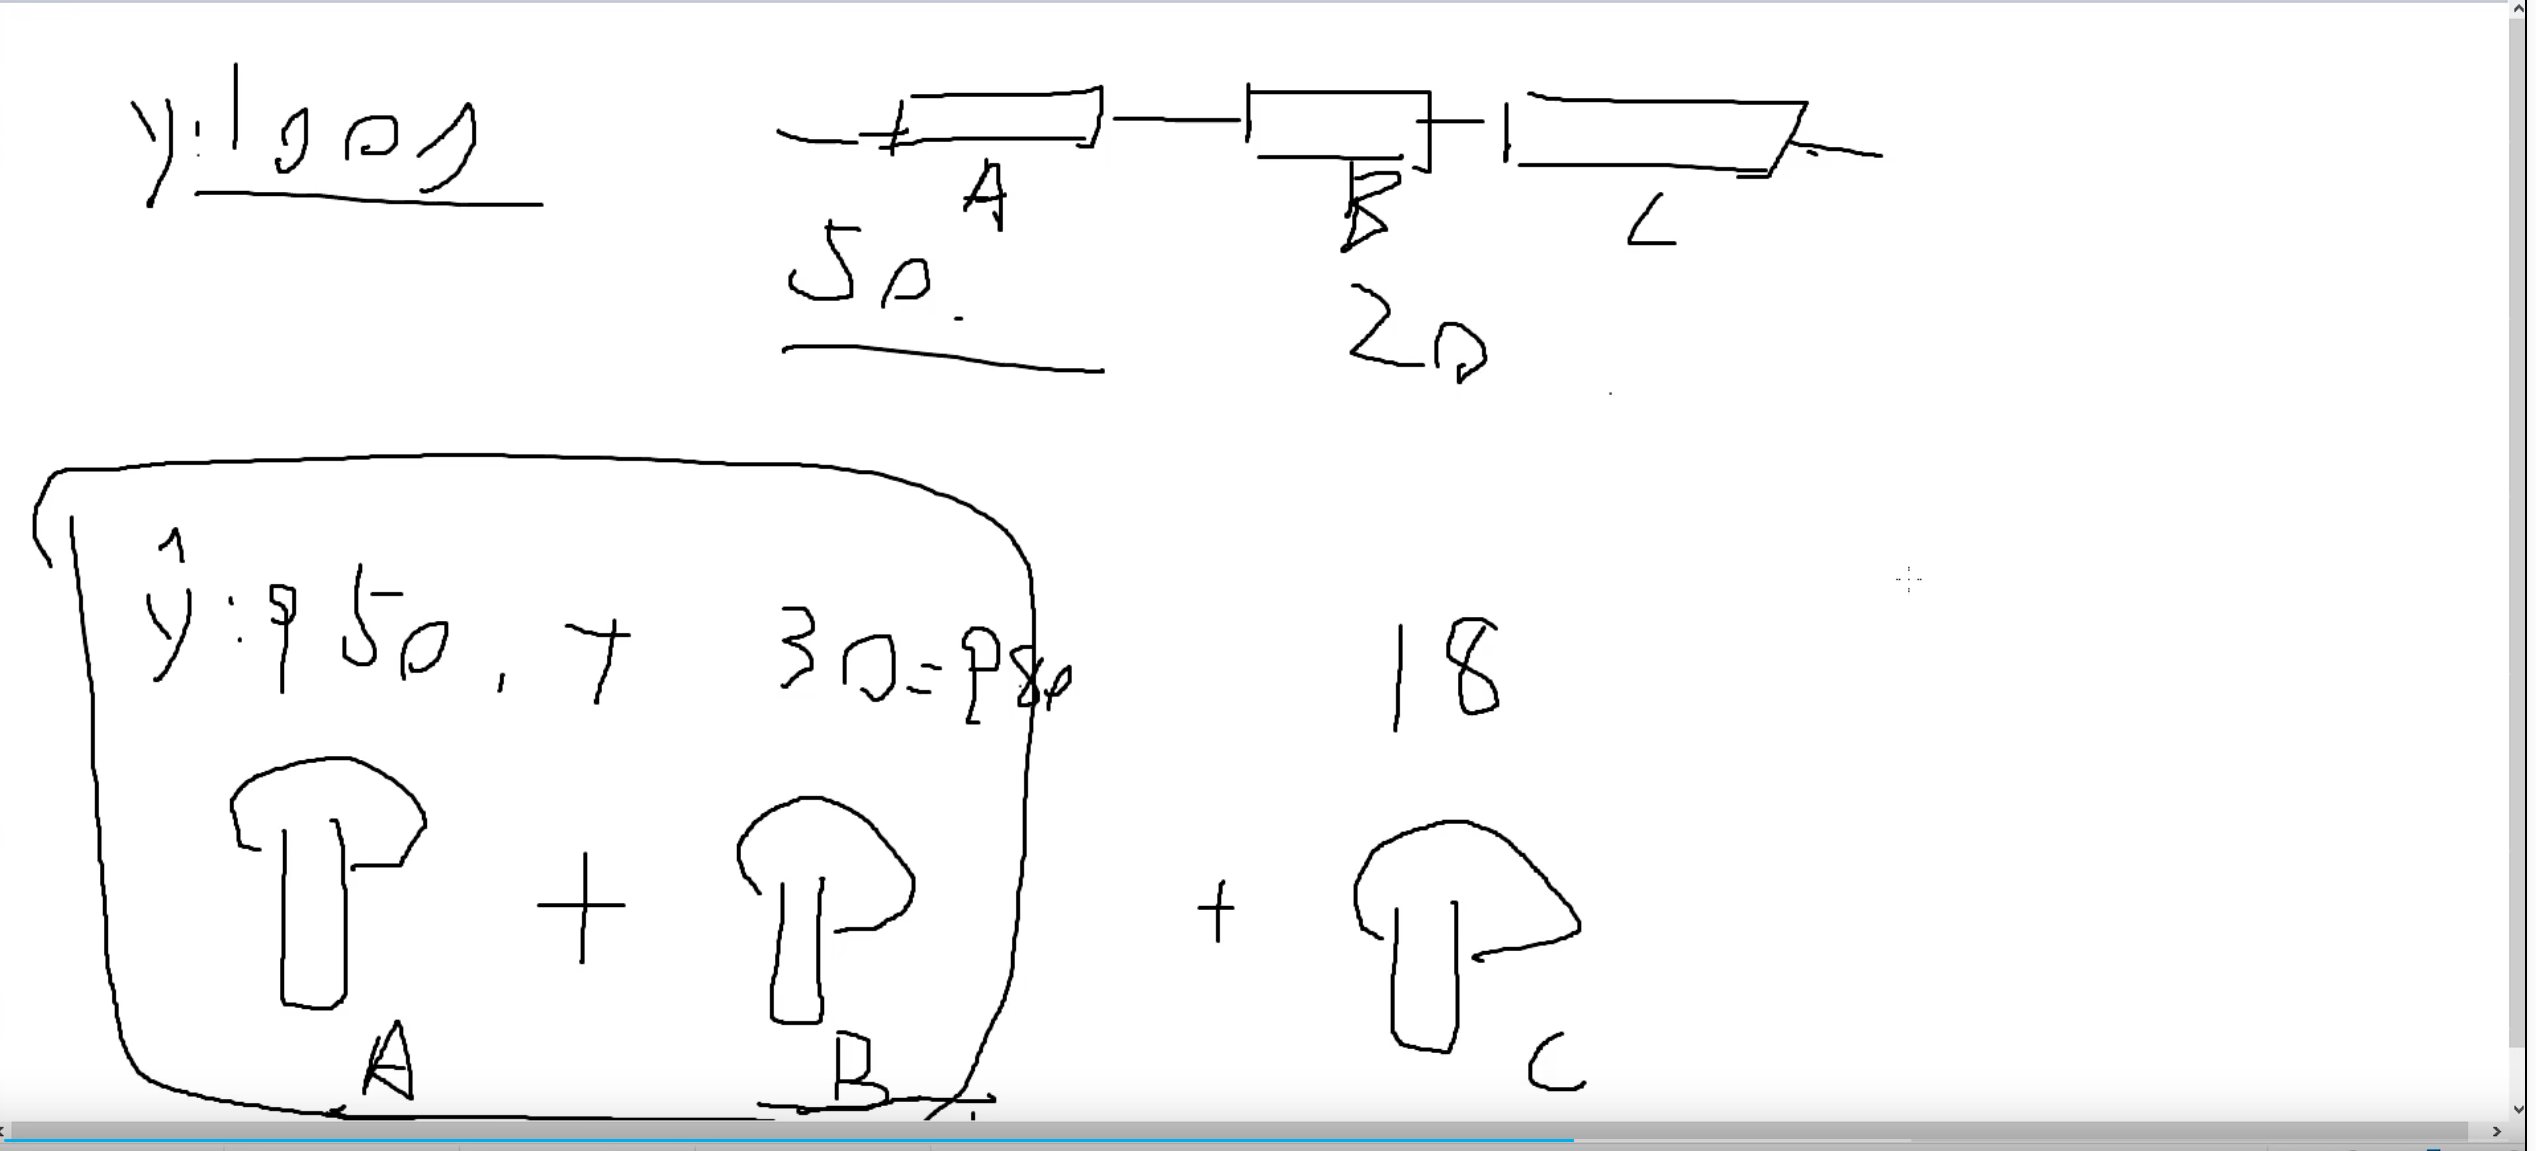 y: 1000
A B C
50.
20
ŷ: 950, + 30 = 980 18
+ +
A B C